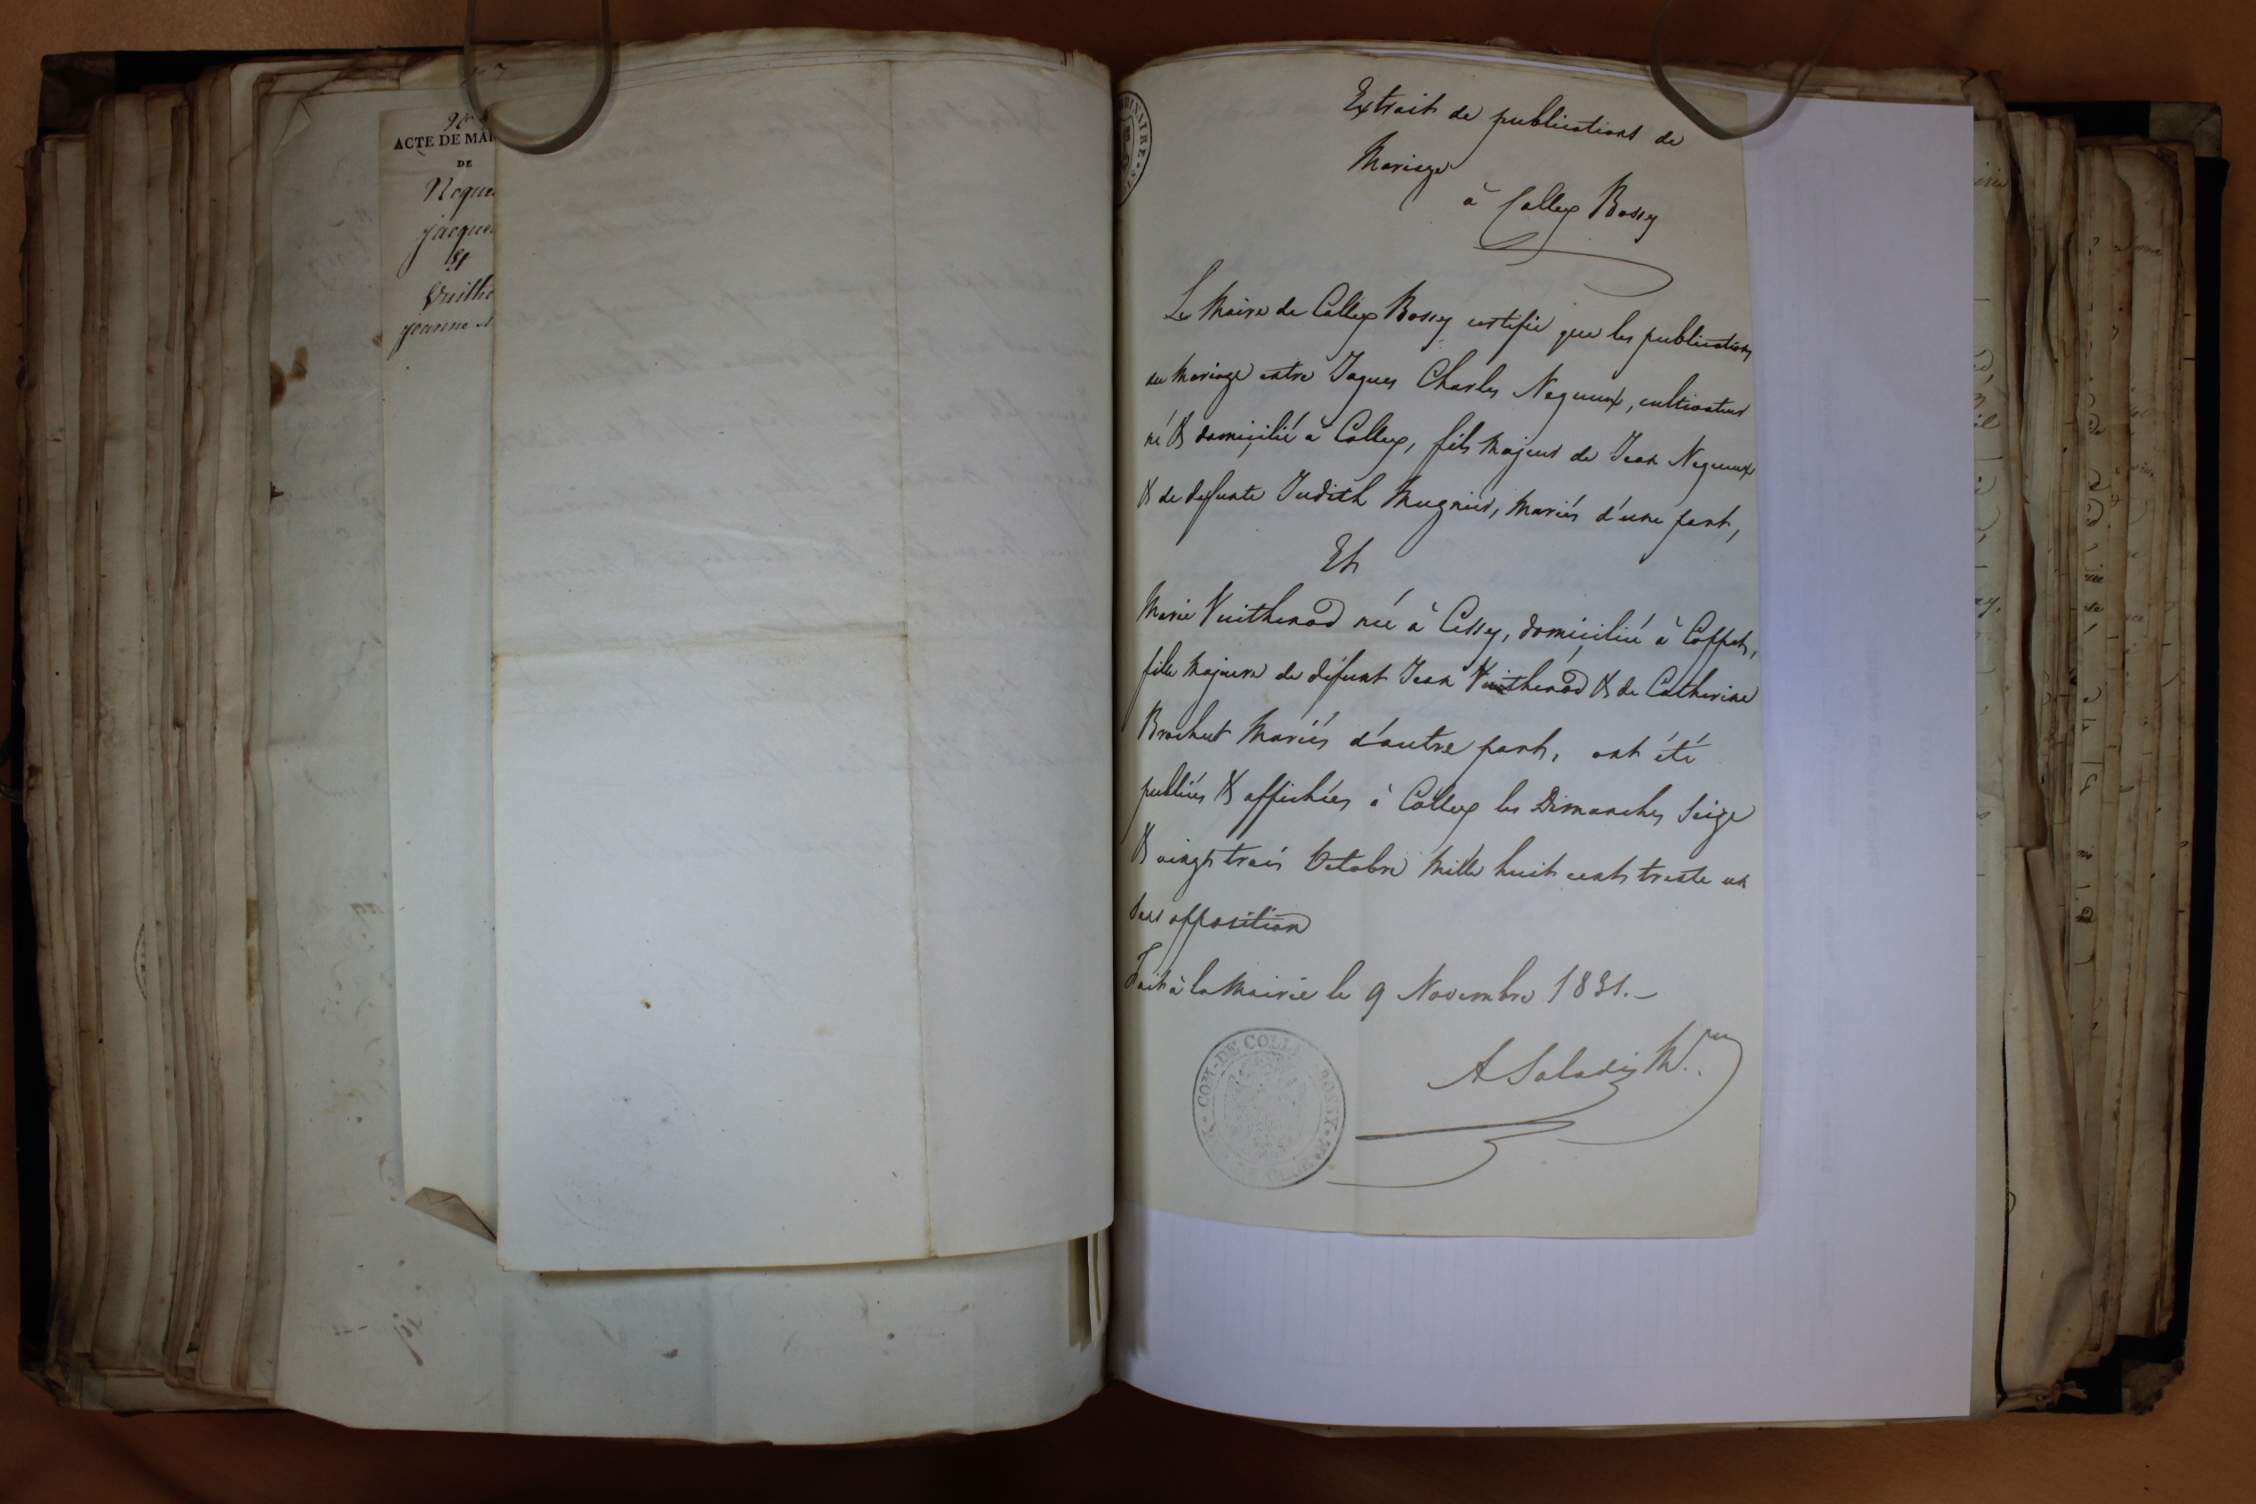 ACTE DE MA
DE
Neque
jacque
et
Vuithe
jeanne
Extrait de publications de
Mariage
à Collex Bossy
Le Maire de Collex Bossy certifie que les publications
du mariage entre Jaques Charles Nequeux, cultivateur
né & domicilié à Collex, fils majeur de Jean Nequeux
& de defunte Judith Mugnier, mariés d'une part,
Et
Marie Vuithenod née à Cessy, domiciliée à Coppet,
fille majeure de défunt Jean Vuithenod & de Catherine
Brochut mariés d'autre part, ont été
publiées & affichées à Collex les Dimanches seize
& vingt trois Octobre mille huit cent trente un
sans opposition
Fait à la Mairie le 9 Novembre 1831.-
A Saladin M.re
COM. DE COLL BOSSY